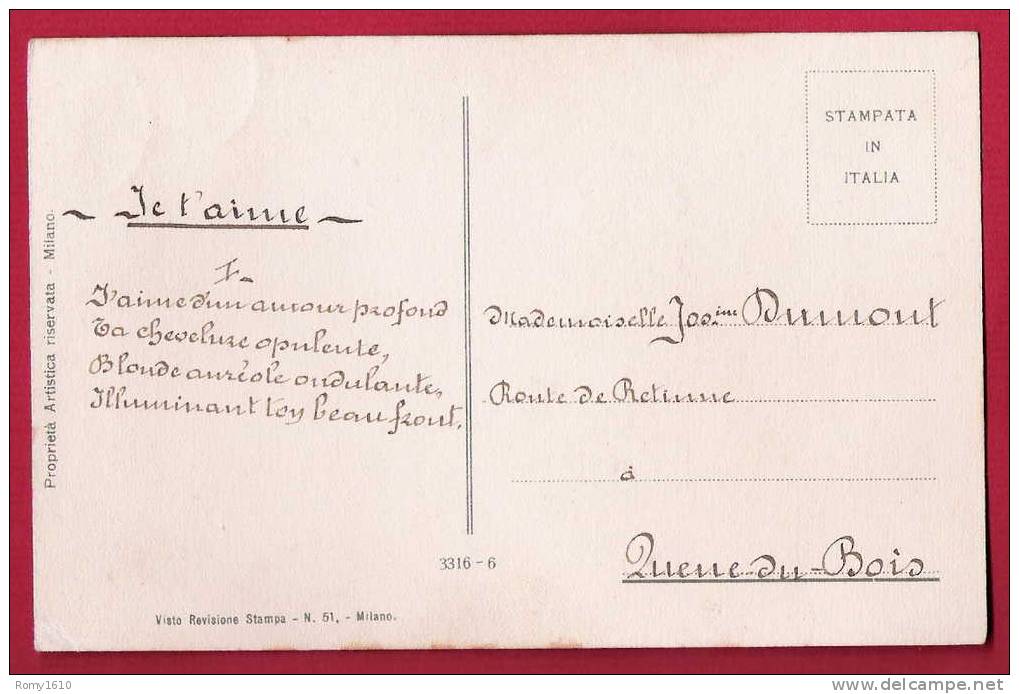 Proprietà Artistica riservata - Milano.
~ Je t'aime ~
I-
J'aime d'un amour profond
Ta chevelure opulente,
Blonde auréole ondulante,
Illuminant ton beau front.
Visto Revisione Stampa - N. 51, - Milano.
3316-6
STAMPATA
IN
ITALIA
Mademoiselle Jos.ine Dumont
Route de Retinne
à
Queue-du-Bois
Romy1610
delcampe.net